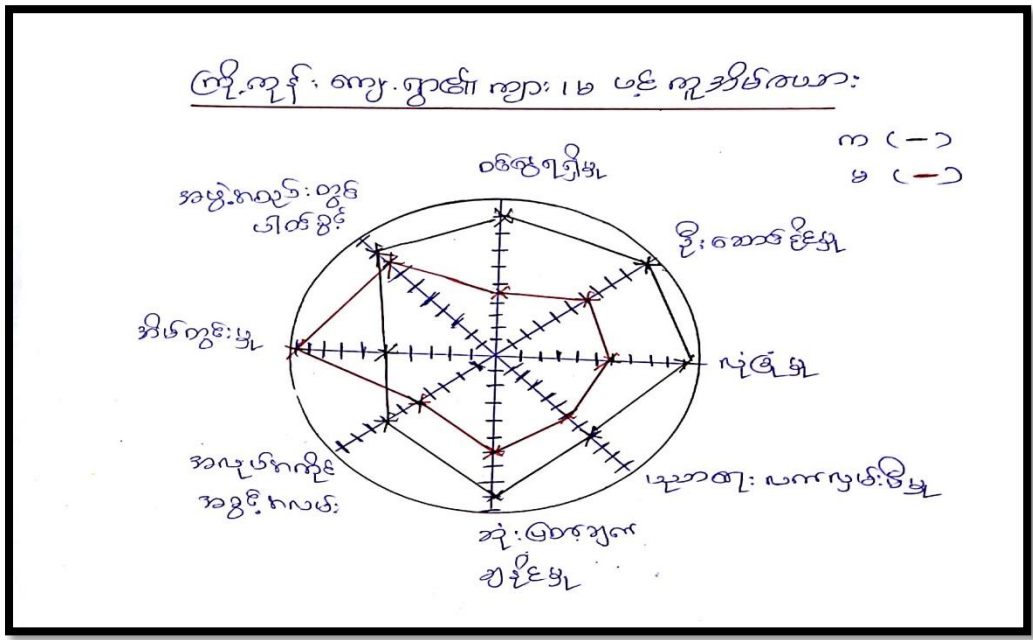 ကြို့ကုန်း ကျေးရွာ၏ ကျား/မ ပင့်ကူအိမ်ဇယား
က (—)
မ (—)
ဝင်ငွေရရှိမှု
ဦးဆောင်နိုင်မှု
လုံခြုံမှု
ပညာရေး လက်လှမ်းမီမှု
ဆုံးဖြတ်ချက်
ချနိုင်မှု
အလုပ်အကိုင်
အခွင့်အလမ်း
အိမ်တွင်းမှု
အဖွဲ့အစည်းတွင်
ပါဝင်ခွင့်